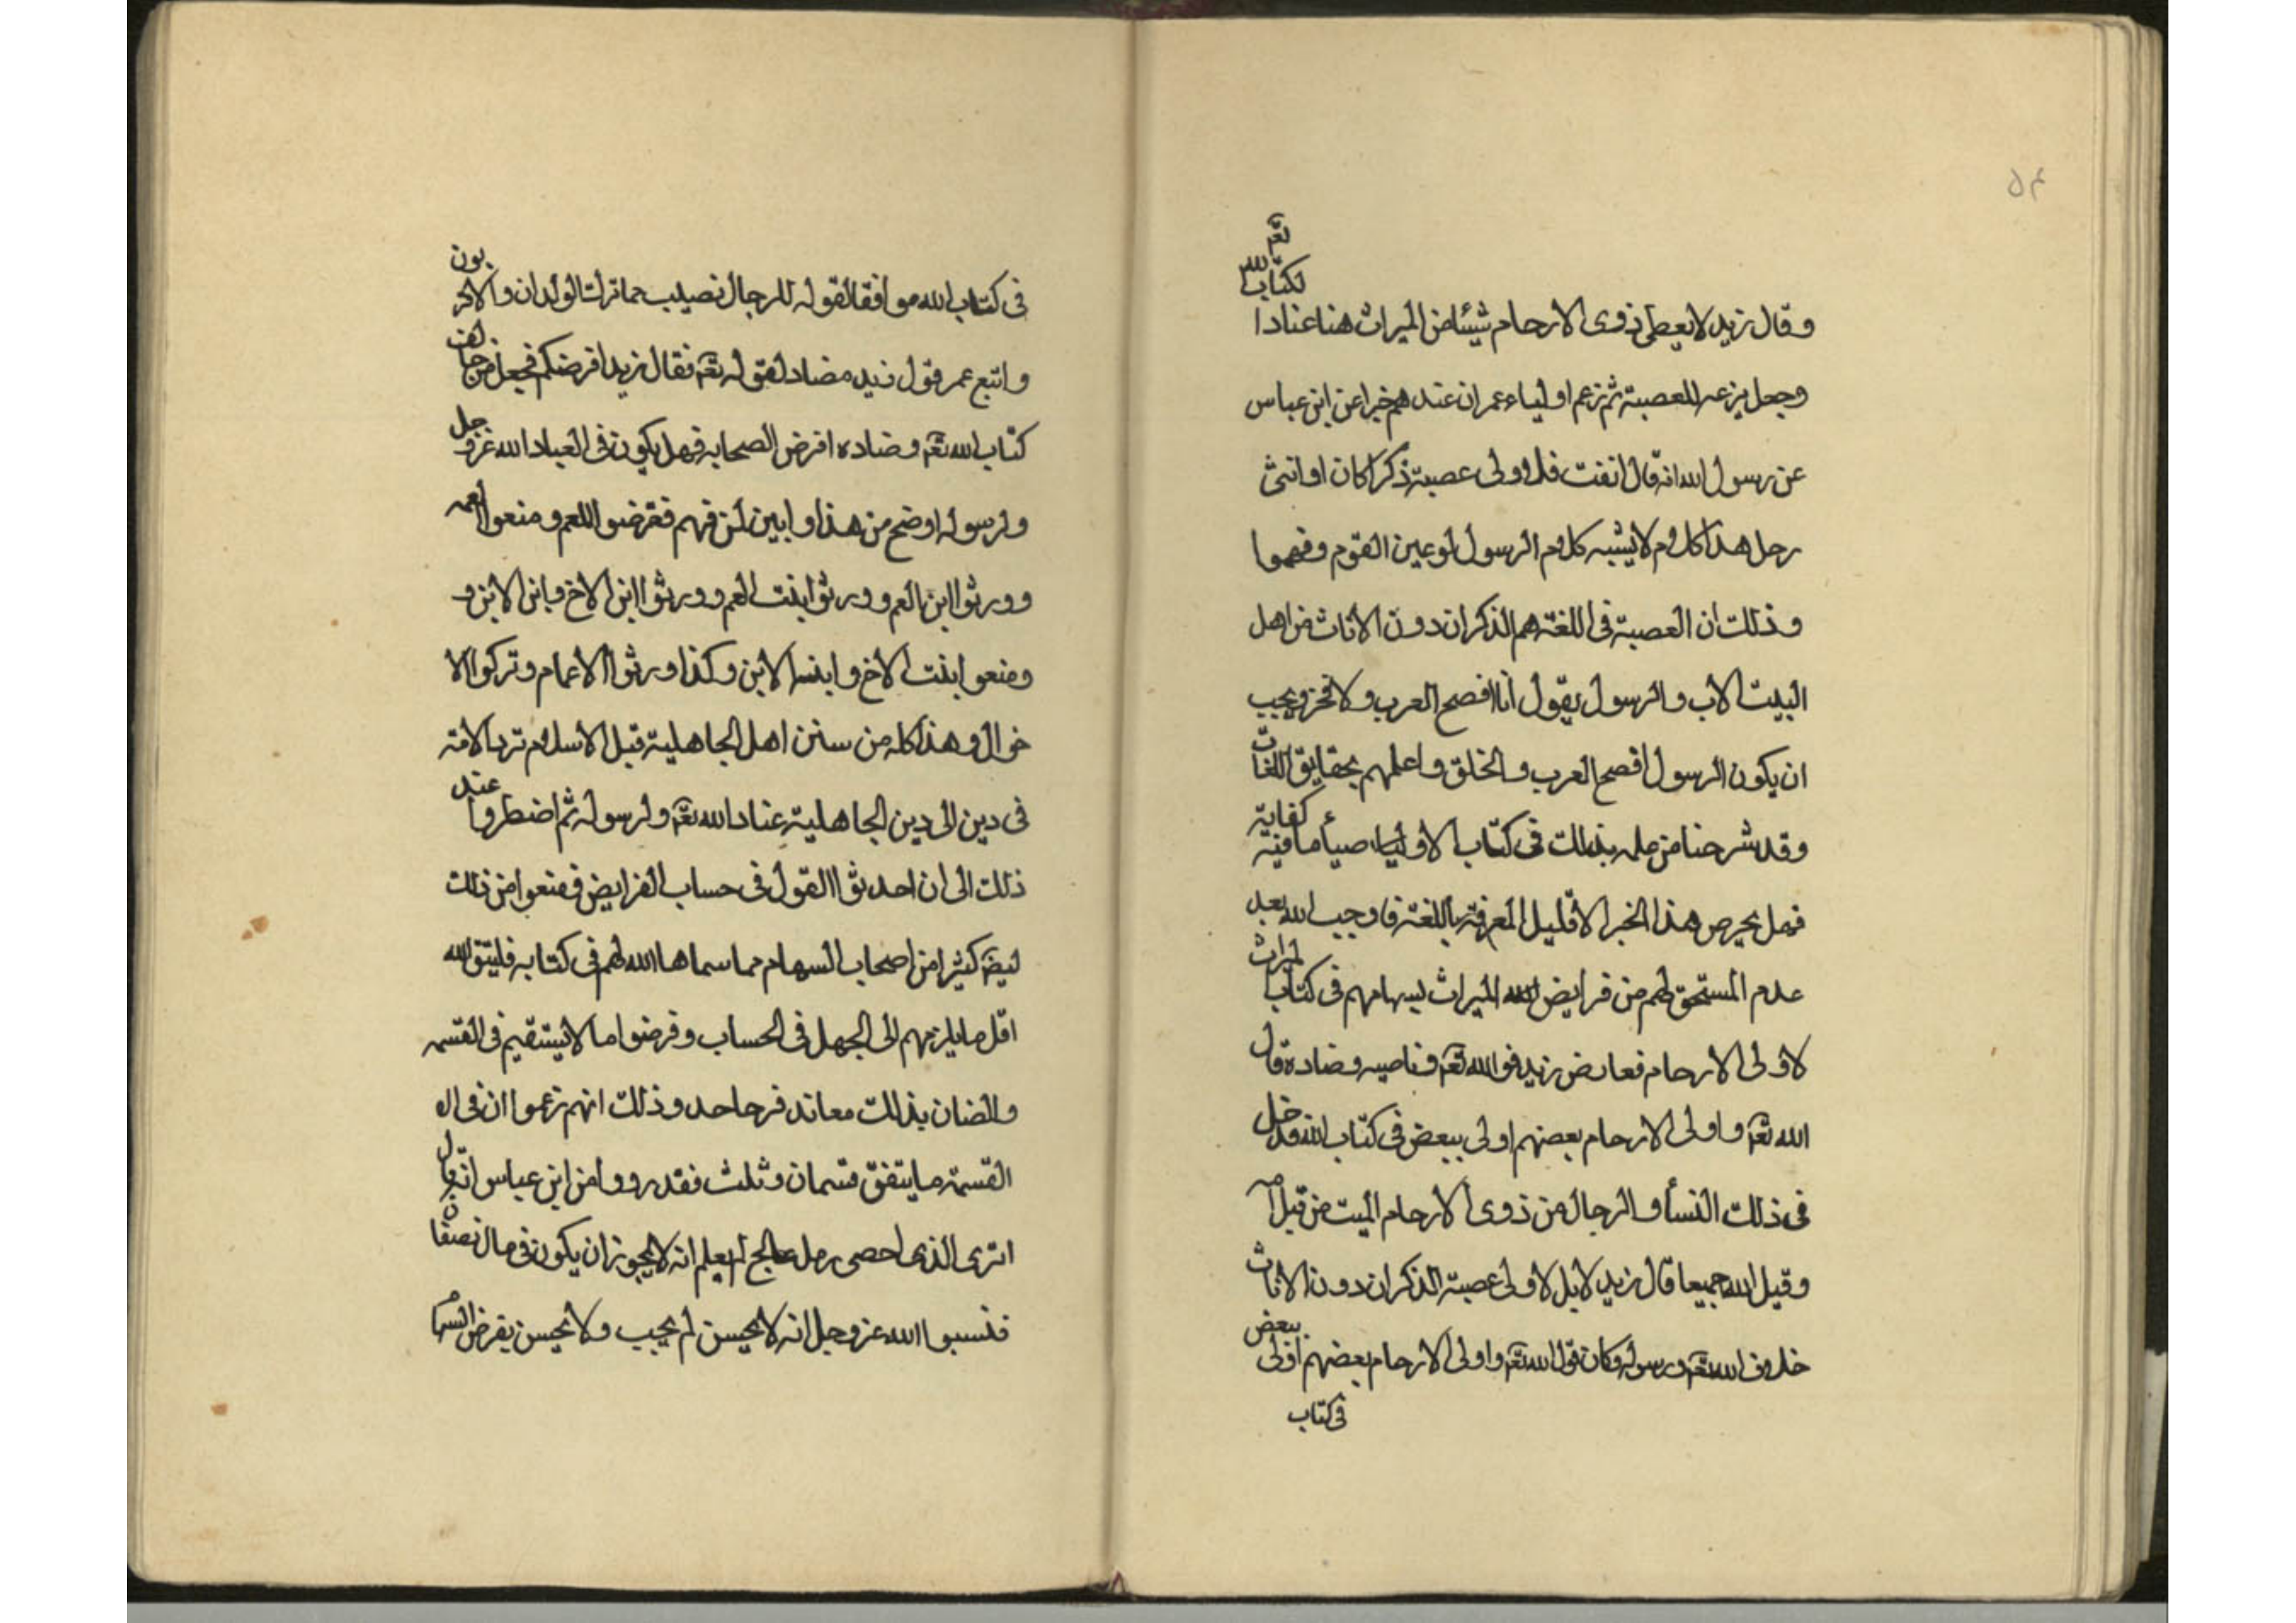 ۵۴
وقال زيد لا يعطى ذوى الارحام شيئا من الميراث هنا عنادا لكتاب الله تعم
وجعل بزعمه للعصبة ثم زعم اولياء عمر ان عندهم خبرا عن ابن عباس
عن رسول الله انه قال انفت فلاولى عصبة ذكرا كان او انثى
رجل هذا كلام لا يشبه كلام الرسول لو عين القوم وفهموا
وذلك ان العصبة فى اللغة هم الذكران دون الاناث من اهل
البيت الاب والرسول يقول انا افصح العرب ولا فخر ويجب
ان يكون الرسول افصح العرب والخلق واعلمهم بحقايق اللغات
وقد شرحنا من ملمه بذلك فى كتاب الاوليا ما فيه كفاية
فهل يحرص هذا الخبر الا قليل المعرفة باللغة فاوجب الله بعد
عدم المستحق لهم من فرايض الله الميراث بسهامهم فى كتاب الميراث
لاولى الارحام فعارض زيد قول الله تعم وناصبه وضاده قال
الله تعم واولى الارحام بعضهم اولى ببعض فى كتاب الله فدخل
فى ذلك النسأ والرجال من ذوى الارحام الميت من قبل
وقيل الله جميعا قال زيد لا بل لاولى عصبة الذكران دون الاناث
خلاف الله تعم ورسوله وكان قول الله تعم واولى الارحام بعضهم اولى ببعض
فى كتاب
فى كتاب الله موافقا لقوله للرجال نصيب مما ترك الوالدان والاقربون
واتبع عمر قول زيد مضاد لقوله تعم فقال زيد افرضكم فجعل من خالف
كتاب الله تعم وضاده افرض الصحابه فهل يكون فى العباد الله عز وجل
ولرسوله اوضح من هذا وابين لمن فهم ففرضوا للعم ومنعوا العمه
وورثوا ابن العم وورثوا ابنت العم وورثوا ابن الاخ وابن الابن و
ومنعوا ابنت الاخ وابنت الابن وكذا ورثوا الاعمام وتركوا الا
خوال وهذا كله من سنن اهل الجاهلية قبل الاسلام ترد الامة
فى دين الى دين الجاهلية عنادا لله تعم ولرسوله ثم اضطروا عند
ذلك الى ان احدثوا القول فى حساب الفرايض فمنعوا من ذلك
كثيرا من اصحاب السهام مما سماها الله لهم فى كتابه فليتق الله
اقل ما يلزمهم الى الجهل فى الحساب وفرضوا ما لا يستقيم فى القسمه
والضان بذلك معاند فرحا حد وذلك انهم زعموا ان فى ال
القسمة ما يتفق قسمان وثلث فقد رووا من ابن عباس انه قال
اترى الذى احصى رمل عالج لم يعلم انه لا يجوز ان يكون فى مال نصفا
فنسبوا الله عز وجل انه لا يحسن لم يجب ولا يحسن يفرض السهام